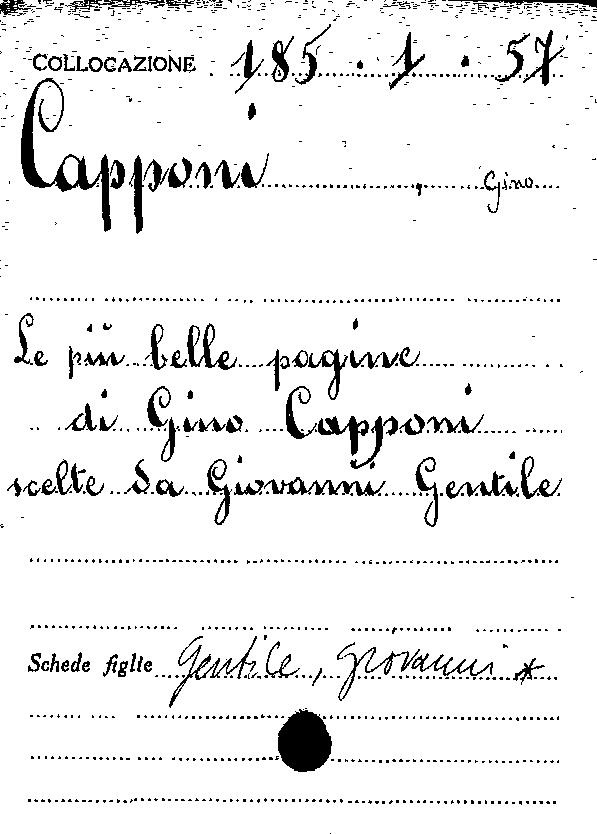 COLLOCAZIONE 185 . 1 . 57
Capponi , Gino
Le più belle pagine
di Gino Capponi
scelte da Giovanni Gentile
Schede figlie Gentile, Giovanni *